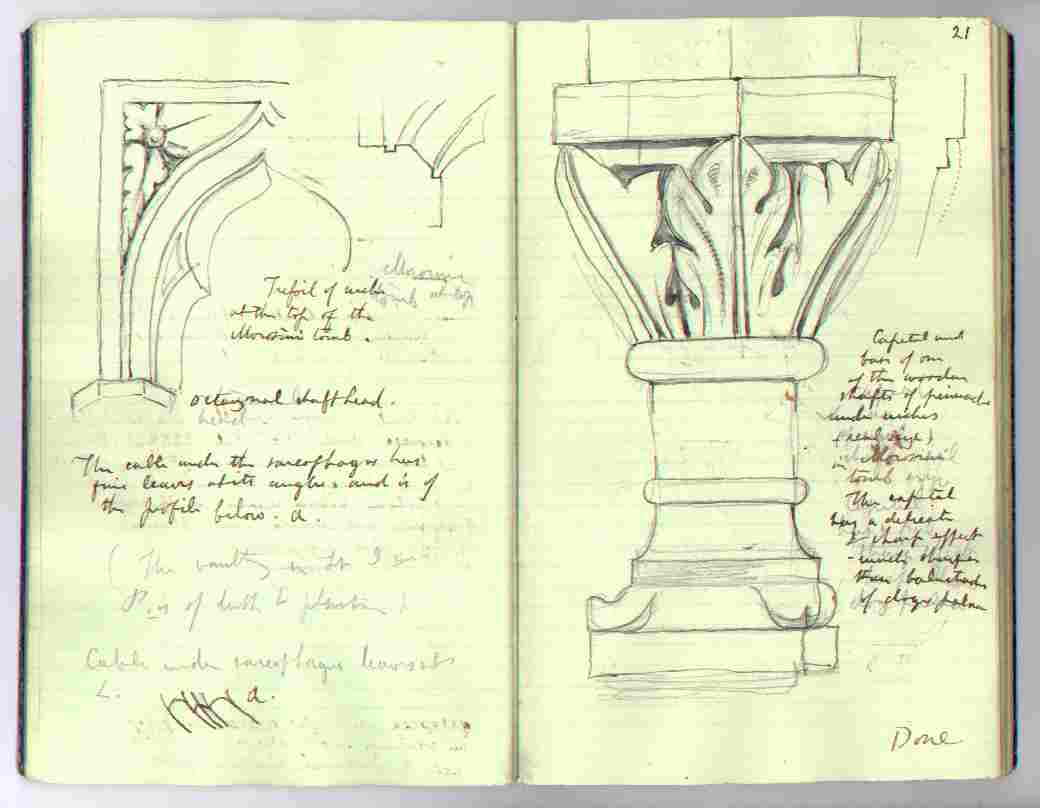 Trefoil of niche
at the top of the
Morosini tomb.
Morosini
tomb
octagonal shaft head.
The cable under the sarcophagus has
fine leaves at its angles and is of
the profile below. a.
(The vaulting
P. is of bath &
Cable under sarcophagus leaves at
L.
a.
21
Capital and
base of one
of the wooden
shafts of pinnacle
under niches
(real size)
in Morosini
tomb
The capital
has a delicate
& sharp effect
- much sharper
than balustrade
of doges palace
Done